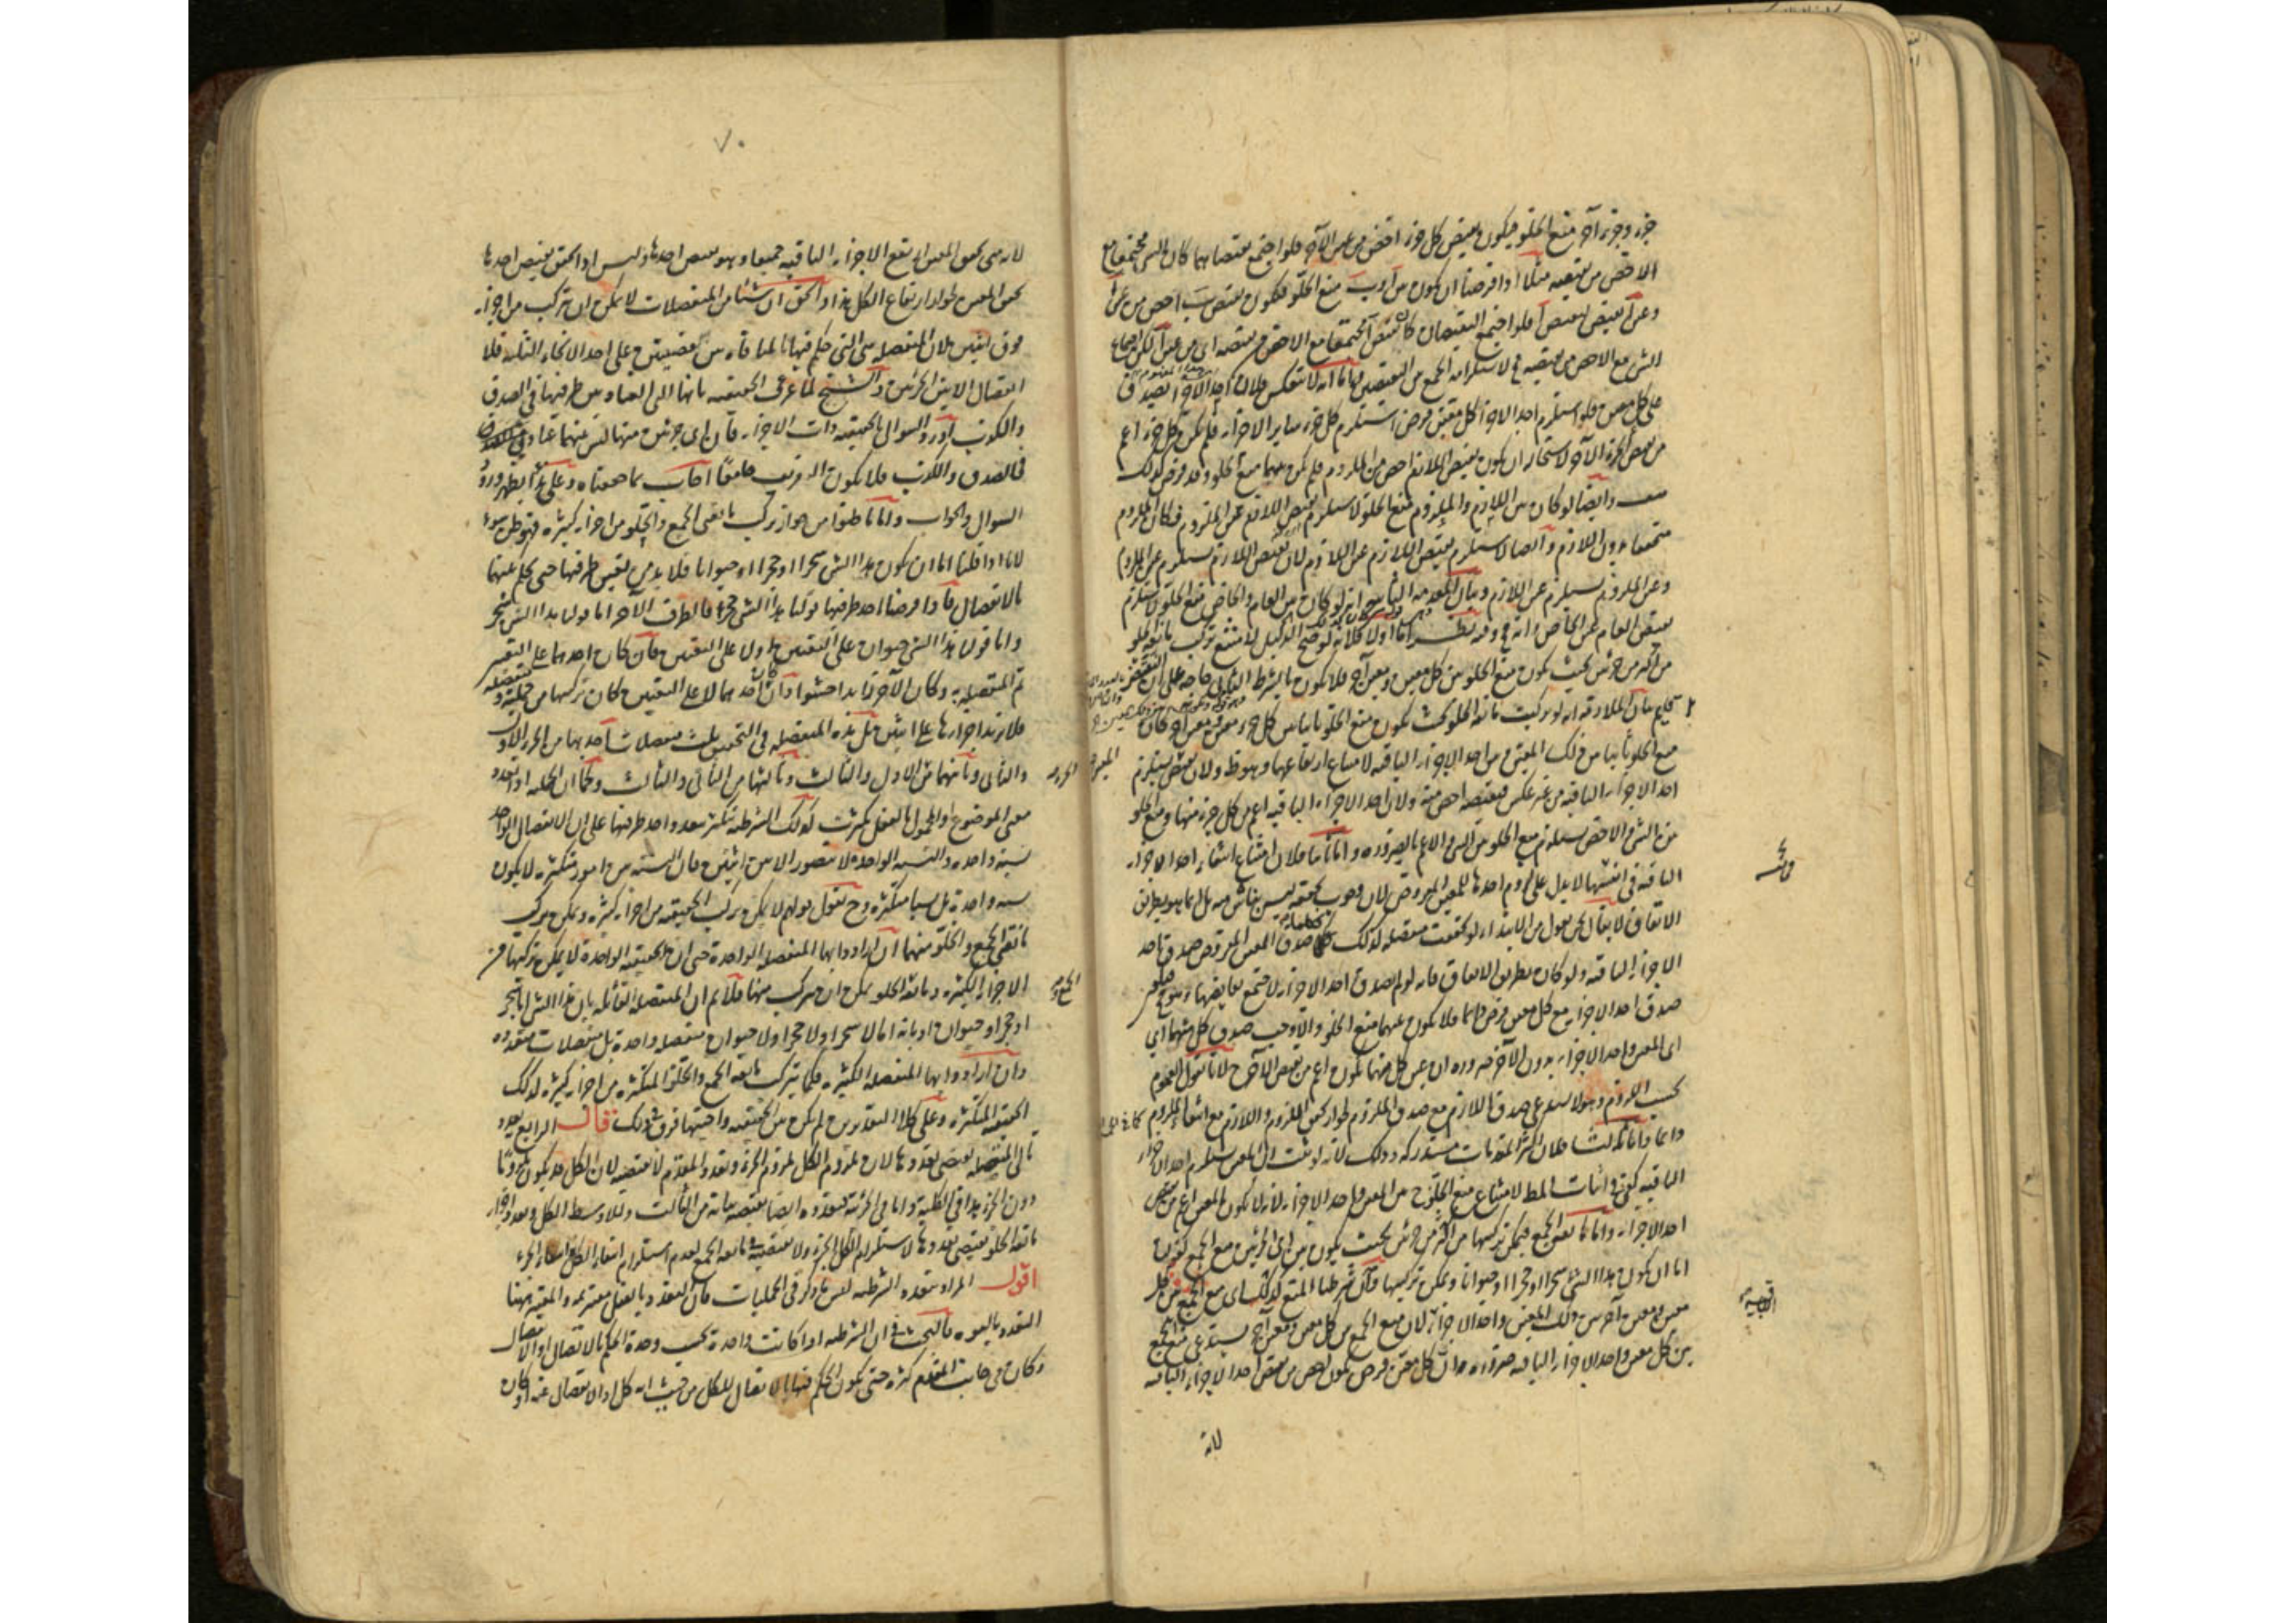 جزء وجزء آخر منع الخلو فيكون نقيض كل جزء اخص من عين الآخر فلو اجتمع نقيضاهما كان الشئ مجتمعا مع
الاخص من نقيضه مثلا اذا فرضنا ان يكون بين آ و ب منع الخلو فيكون نقيض ب اخص من عين آ
وعين آ نقيض لنقيض آ فلو اجتمع النقيضان كان نقيض آ مجتمعا مع الاخص من نقيضه اى من عين آ لكن اجتماع
الشئ مع الاخص من نقيضه مح لاستلزامه الجمع بين النقيضين واما انه لا تنعكس فلان احد الاجزاء يصدق
على كل معين فلو استلزم احد الاجزاء كل معين فرض استلزم كل جزء ساير الاجزاء فلم يكن كل جزء اعم
من نقيض الآخر لاستحالة ان يكون نقيض اللازم اخص من الملزوم فلم يكن بينهما منع الخلو وقد فرض كذلك
وايضا لو كان بين اللازم والملزوم منع الخلو لاستلزم نقيض اللازم عين الملزوم فكان الملزوم
متحققا بدون اللازم وايضا لاستلزم نقيض اللازم عين اللازم لان نقيض اللازم يستلزم عين الملزوم
وعين الملزوم يستلزم عين اللازم وبيان المقدمة الثانية انه لو كان بين العام والخاص منع الخلو لاستلزم
نقيض العام عين الخاص وانه مح وفيه نظر اما اولا فلانه لو صح الدليل لامتنع تركب مانعة الخلو
من اكثر من جزئين بحيث يكون منع الخلو بين كل معين ومعين آخر
منع الخلو ثانيا بين ذلك المعين وبين احد الاجزاء الباقية لامتناع ارتفاعهما وهو ظ ولان نقيض يستلزم
احد الاجزاء الباقية من غير عكس فنقيضه اخص منه ولان احد الاجزاء الباقية اعم من كل جزء منها ومنع الخلو
بين الشئ والاخص يستلزم منع الخلو بين الشئ والاعم بالضرورة واما ثانيا فلان امتناع انتفاء احد الاجزاء
الباقية في نفسها لا يدل على لزوم احدها للمعين المفروض
الاتفاق لا يقال نحن نقول من الابتداء لو تحققت منفصلة كذلك كلما صدق المعين المفروض صدق احد
الاجزاء الباقية ولو كان بطريق الاتفاق فانه لو لم يصدق احد الاجزاء لاجتمع نقايضها
صدق احد الاجزاء مع كل معين فرض دائما فلا يكون عينهما منع الخلو والا وجب صدق كل منهما اى
اى المعين واحد الاجزاء بدون الآخر ضرورة ان عين كل منهما يكون اعم من نقيض الآخر لانا نقول العموم
بحسب اللزوم وهو لا يستدعى صدق اللازم مع صدق الملزوم لجواز كون الملزوم واللازم مع انتفاء الملزوم
دائما واما ثالثا فلان اكثر المقدمات مستدركة وذلك لانه لو ثبت ان المعين يستلزم احد الاجزاء
الباقية كفى في اثبات المط لامتناع منع الخلو ح بين المعين واحد الاجزاء لانه لا يكون المعين اعم من نقيض
احد الاجزاء واما مانعة الجمع فيمكن تركبها من اكثر من جزئين بحيث يكون بين اى جزئين منع الجمع كقولنا
اما ان يكون هذا الشئ شجرا او حجرا او حيوانا ويمكن تركيبها فان شرطنا المنع كذلك اى منع الجمع بين كل
معين ومعين آخر بين ذلك المعين واحد الاجزاء لان منع الجمع بين كل معين ومعين آخر يستدعى منع الجمع
بين كل معين واحد الاجزاء الباقية ضرورة وان كل معين فرض يكون اخص من نقيض احد الاجزاء الباقية
لانه
٧٠
لانه متى تحقق المعين ارتفع الاجزاء الباقية جميعا وهو نقيض احدها وليس اذا تحقق نقيض احدها
تحقق المعين لجواز ارتفاع الكل هذا والحق ان شيئا من المنفصلات لا يمكن ان يتركب من اجزاء
فوق اثنين لان المنفصلة هى التي حكم فيها بالمنافاة بين قضيتين على احد الانحاء الثلثة فلا
انفصال الا بين الجزئين والشيخ لما عرف الحقيقية بانها التي العناد بين طرفيها في الصدق
والكذب اورد السؤال بالحقيقية ذات الاجزاء فان اى جزئين منها ليس بينهما عناد في
في الصدق والكذب فلا يكون التعريف جامعا اجاب بما حققناه وعلى هذا يظهر ورود
السؤال والجواب واما ما ظنوا من جواز تركب مانعتى الجمع والخلو من اجزاء كثيرة فهو ظن سوء
لانا اذا قلنا اما ان يكون هذا الشئ شجرا او حجرا او حيوانا فلا بد من تعيين طرفيها حتى يحكم بينهما
بالانفصال فاذا فرضنا احد طرفيها قولنا هذا الشئ حجر فالطرف الآخر اما قولنا هذا الشئ شجر
واما قولنا هذا الشئ حيوان على التعيين او لا على التعيين فان كان احدهما على التعيين
تم المنفصلة به وكان الآخر زايدا حشوا وان كان احدهما لا على التعيين كان تركبها من حملية ومنفصلة
فلا تزيد اجزاؤها على اثنين بل هذه المنفصلة في التحقيق ثلث منفصلات احديها من الجزء الاول
والثاني وثانيتها من الاول والثالث وثالثتها من الثاني والثالث وكما ان الحملية اذا تعدد
معنى الموضوع او المحمول بالفعل تكثرت كذلك الشرطية تتكثر بتعدد احد طرفيها على ان الانفصال الواحد
نسبة واحدة والنسبة الواحدة لا تتصور الا بين اثنين فان النسبة بين امور متكثرة لا يكون
نسبة واحدة بل نسبا متكثرة وح نقول قولهم لا يمكن تركب الحقيقية من اجزاء كثيرة ويمكن تركب
مانعتى الجمع والخلو منها ان ارادوا بها المنفصلة الواحدة حتى ان الحقيقية الواحدة لا يمكن تركبها من
الاجزاء الكثيرة ومانعة الخلو يمكن ان تتركب منها فلا نم ان المنفصلة القائلة بان هذا الشئ اما شجر
او حجر او حيوان او بانه اما لا شجر او لا حجر او لا حيوان منفصلة واحدة بل منفصلات متعددة
وان ارادوا بها المنفصلة الكثيرة فكما يتركب مانعة الجمع والخلو المتكثرة من اجزاء كثيرة كذلك
الحقيقية المتكثرة وعلى كلا التقديرين لم يكن بين الحقيقية واختيها فرق في ذلك قال الرابع تعدد
تالى المتصلة يقتضى تعددها لان ملزوم الكل ملزوم الجزء وتعدد المقدم لا يقتضيه لان الكل قد يكون ملزوما
دون الجزء هذا في الكلية واما في الجزئية فتعدده ايضا يقتضيه بيانه من الثالث والاوسط الكل وتعدد اجزاء
مانعة الخلو يقتضى تعددها لاستلزام الكل الجزء ولا يقتضيه في مانعة الجمع لعدم استلزام انتفاء الكل انتفاء الجزء
اقول المراد بتعدد الشرطية ليس ما ذكر في الحمليات فان التعدد بالفعل معتبر ثمه والمعتبر ههنا
التعدد بالقوة فالبحث في ان الشرطية اذا كانت واحدة بحسب وحدة الحكم بالاتصال او الانفصال
وكان في جانب المقدم كثرة حتى يكون الحكم فيها بالاتصال للكل من حيث انه كل او الانفصال عنه او كان